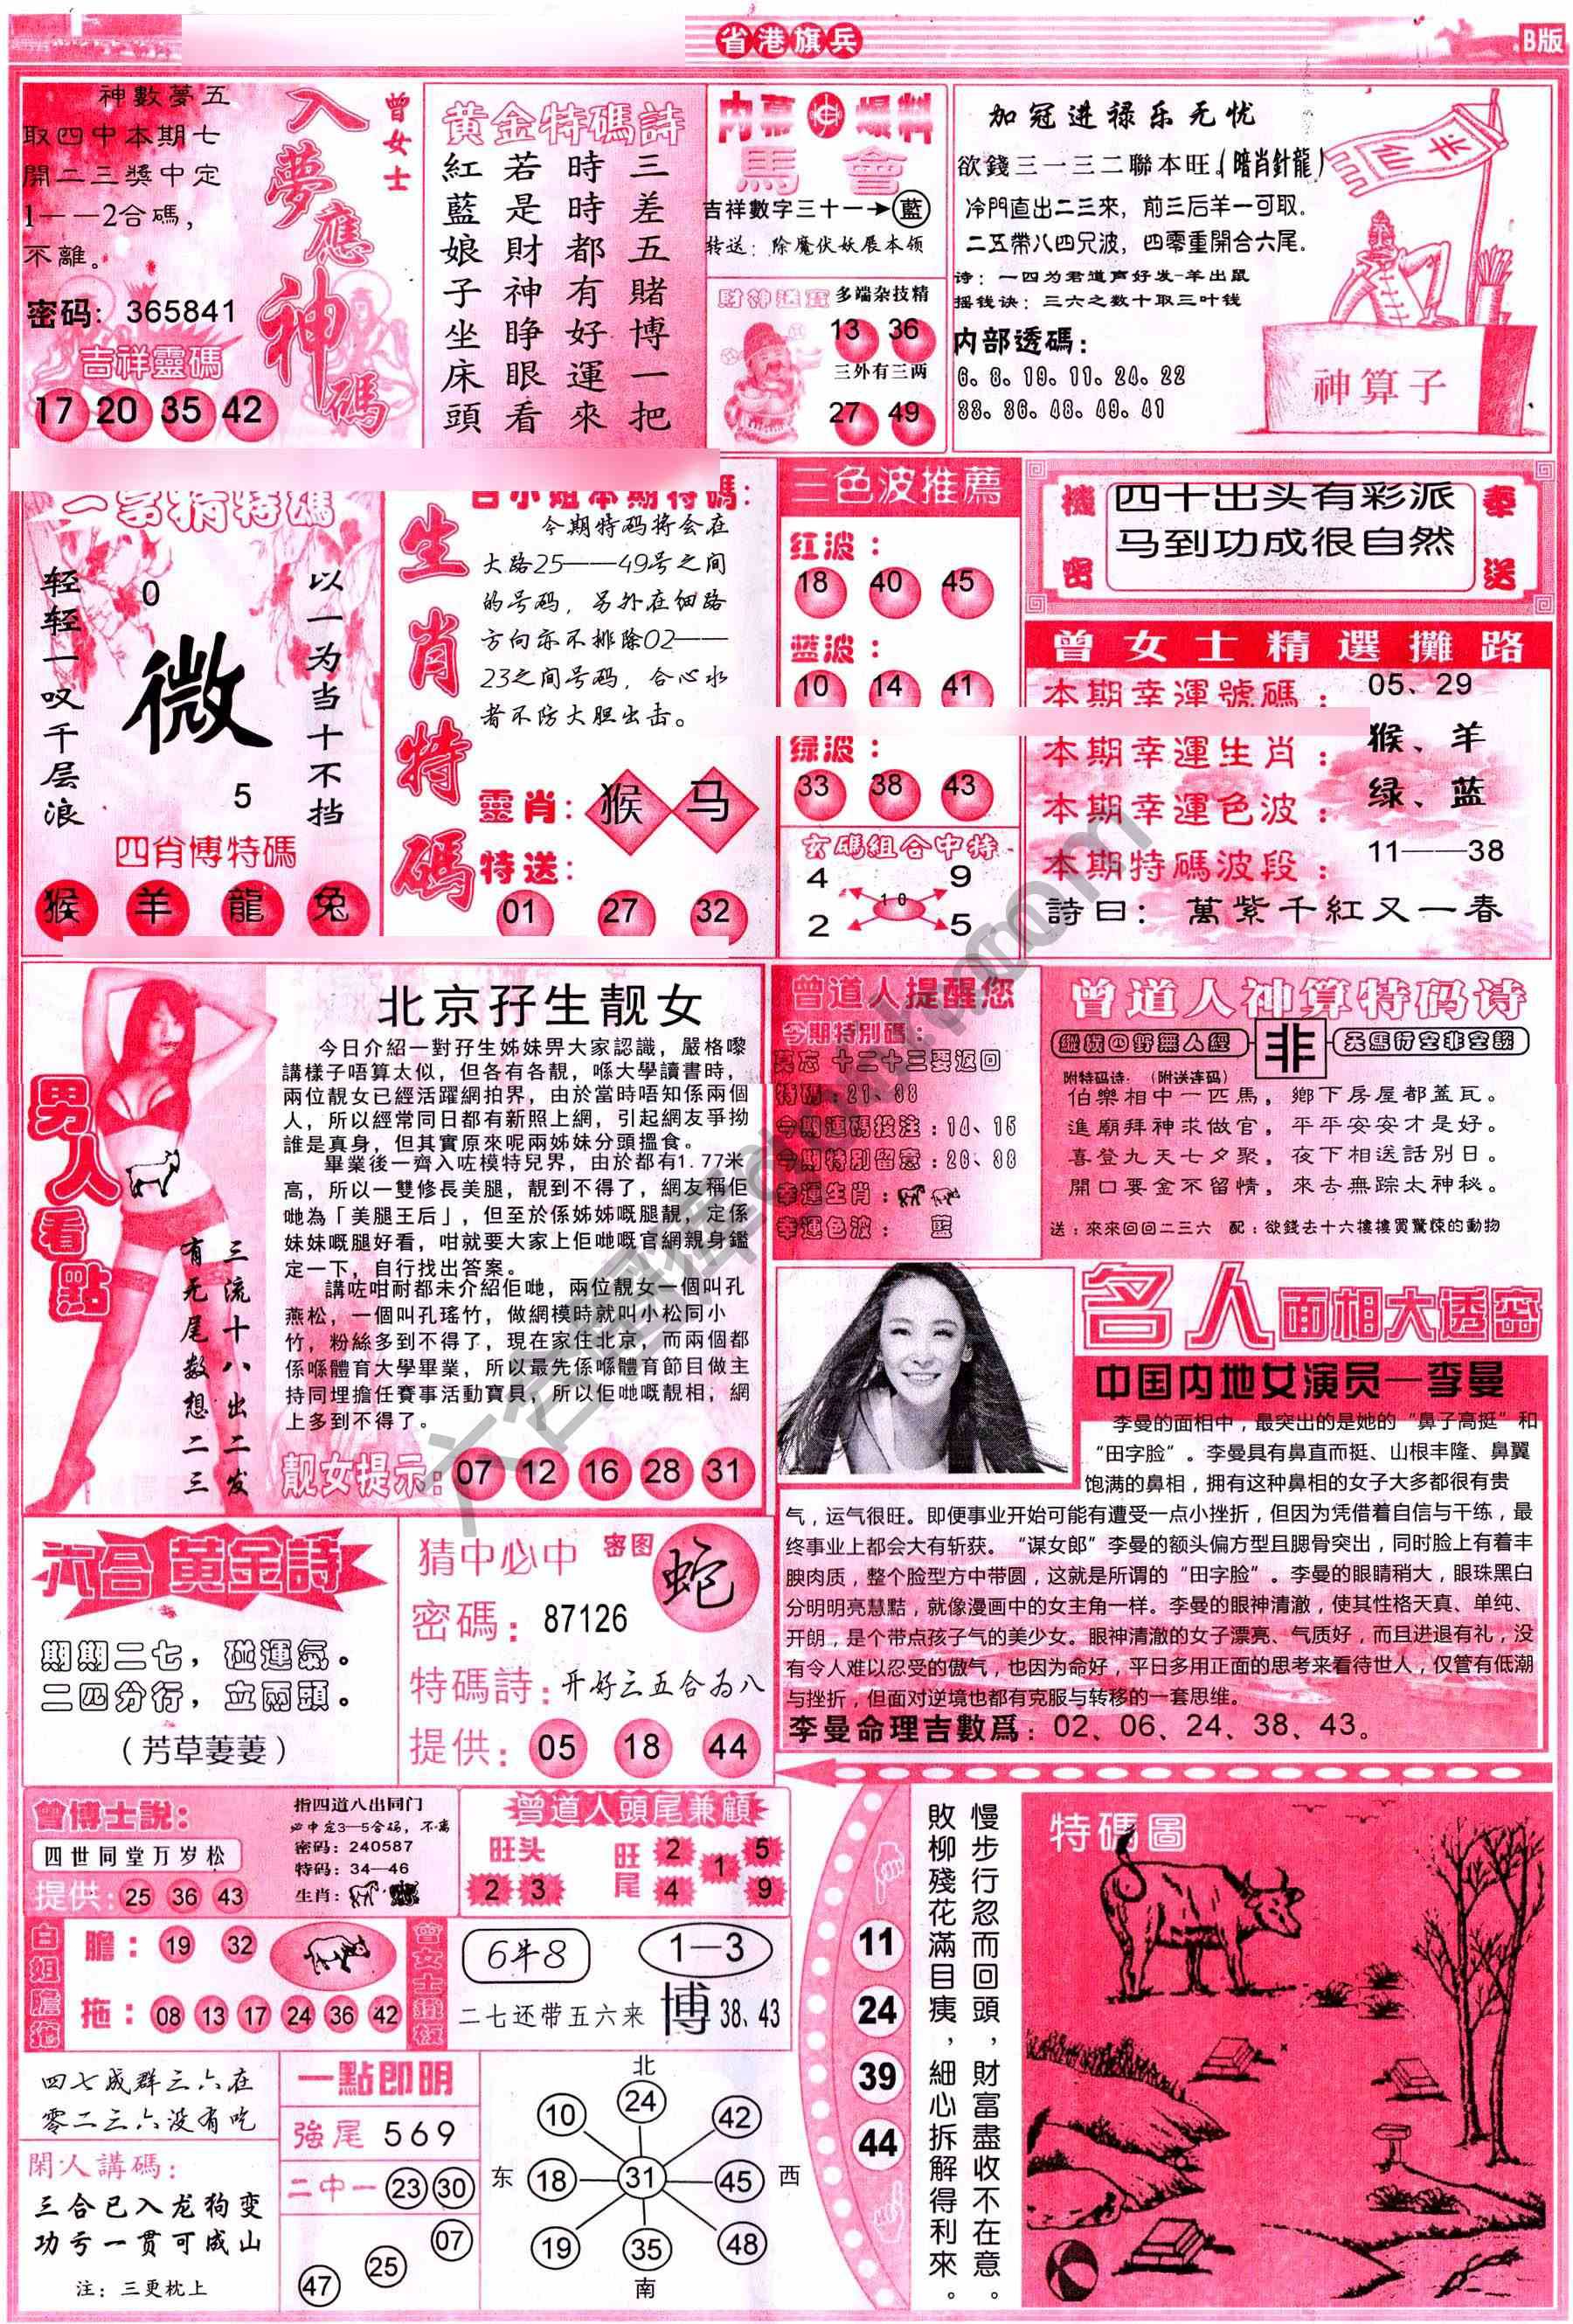 省港旗兵
B版
神數夢五
取四中本期七
開二三獎中定
1——2合碼，
不離。
密码：365841
吉祥靈碼
17 20 35 42
入夢應神碼
曾女士
黄金特碼詩
三差五賭博一把
時時都有好運來
若是財神睁眼看
紅藍娘子坐床頭
内幕爆料
馬會
吉祥數字三十一→藍
转送：除魔伏妖展本领
財神送寶
多端杂技精
13 36
三外有三两
27 49
加冠进禄乐无忧
欲錢三一三二聯本旺(暗肖針龍)
冷門直出二三來，前三后羊一可取。
二五帶八四兄波，四零重開合六尾。
诗：一四为君道声好发-羊出鼠
摇钱诀：三六之数十取三叶钱
内部透碼：
6、8、19、11、24、22
33、36、48、49、41
半仙
神算子
一字精特碼
以一为当十不挡
轻轻一叹千层浪
0
微
5
四肖博特碼
猴 羊 龍 兔
生肖特碼
白小姐本期特碼：
今期特码将会在
大路25——49号之间
的号码，另外在细路
方向亦不排除02——
23之间号码，合心水
者不防大胆出击。
靈肖：猴 马
特送：
01 27 32
三色波推薦
红波：
18 40 45
蓝波：
10 14 41
绿波：
33 38 43
玄碼組合中特
4 9
10
2 5
機密
四十出头有彩派
马到功成很自然
奉送
曾女士精選攤路
本期幸運號碼：05、29
本期幸運生肖：猴、羊
本期幸運色波：绿、蓝
本期特碼波段：11——38
詩曰：萬紫千紅又一春
男人看點
三流十八出二发
有无尾数想二三
北京孖生靓女
今日介紹一對孖生姊妹畀大家認識，嚴格嚟
講樣子唔算太似，但各有各靚，喺大學讀書時，
兩位靚女已經活躍網拍界，由於當時唔知係兩個
人，所以經常同日都有新照上網，引起網友爭拗
誰是真身，但其實原來呢兩姊妹分頭搵食。
畢業後一齊入咗模特兒界，由於都有1.77米
高，所以一雙修長美腿，靚到不得了，網友稱佢
哋為「美腿王后」，但至於係姊姊嘅腿靚，定係
妹妹嘅腿好看，咁就要大家上佢哋嘅官網親身鑑
定一下，自行找出答案。
講咗咁耐都未介紹佢哋，兩位靚女一個叫孔
燕松，一個叫孔瑤竹，做網模時就叫小松同小
竹，粉絲多到不得了，現在家住北京，而兩個都
係喺體育大學畢業，所以最先係喺體育節目做主
持同埋擔任賽事活動寶貝，所以佢哋嘅靚相，網
上多到不得了。
靓女提示：07 12 16 28 31
曾道人提醒您
今期特別碼：
莫忘 十二十三要返回
特碼：21、38
今期連碼投注：14、15
今期特別留意：20、38
幸運生肖：
幸運色波：藍
曾道人神算特码诗
縱横四野無人經
非
天馬行空非空談
附特码诗：（附送连码）
伯樂相中一匹馬，鄉下房屋都蓋瓦。
進廟拜神求做官，平平安安才是好。
喜登九天七夕聚，夜下相送話別日。
開口要金不留情，來去無踪太神秘。
送：來來回回二三六 配：欲錢去十六樓樓買驚悚的動物
名人面相大透密
中国内地女演员一李曼
李曼的面相中，最突出的是她的“鼻子高挺”和
“田字脸”。李曼具有鼻直而挺、山根丰隆、鼻翼
饱满的鼻相，拥有这种鼻相的女子大多都很有贵
气，运气很旺。即便事业开始可能有遭受一点小挫折，但因为凭借着自信与干练，最
终事业上都会大有斩获。“谋女郎”李曼的额头偏方型且腮骨突出，同时脸上有着丰
腴肉质，整个脸型方中带圆，这就是所谓的“田字脸”。李曼的眼睛稍大，眼珠黑白
分明明亮慧黠，就像漫画中的女主角一样。李曼的眼神清澈，使其性格天真、单纯、
开朗，是个带点孩子气的美少女。眼神清澈的女子漂亮、气质好，而且进退有礼，没
有令人难以忍受的傲气，也因为命好，平日多用正面的思考来看待世人，仅管有低潮
与挫折，但面对逆境也都有克服与转移的一套思维。
李曼命理吉數爲：02、06、24、38、43。
六合黄金詩
期期二七，碰運氣。
二四分行，立兩頭。
（芳草萋萋）
猜中必中
密图
蛇
密碼：87126
特碼詩：开好三五合为八
提供：05 18 44
曾博士說：
四世同堂万岁松
提供：25 36 43
指四道八出同门
必中定3—5合码，不离
密码：240587
特码：34—46
生肖：
曾道人頭尾兼顧
旺头
2 3
旺尾
2 5
1
4 9
白姐膽拖
膽：19 32
拖：08 13 17 24 36 42
曾女士鐵板
6牛8
1—3
二七还带五六来
博 38、43
四七成群三六在
零二三六没有吃
閑人講碼：
三合已入龙狗变
功亏一贯可成山
注：三更枕上
一點即明
強尾 569
二中一 23 30
07
25
47
北
24
10 42
东 18 31 45 西
19 48
35
南
11
24
39
44
慢步行忽而回頭，財富盡收不在意。
敗柳殘花滿目痍，細心拆解得利來。
特碼圖